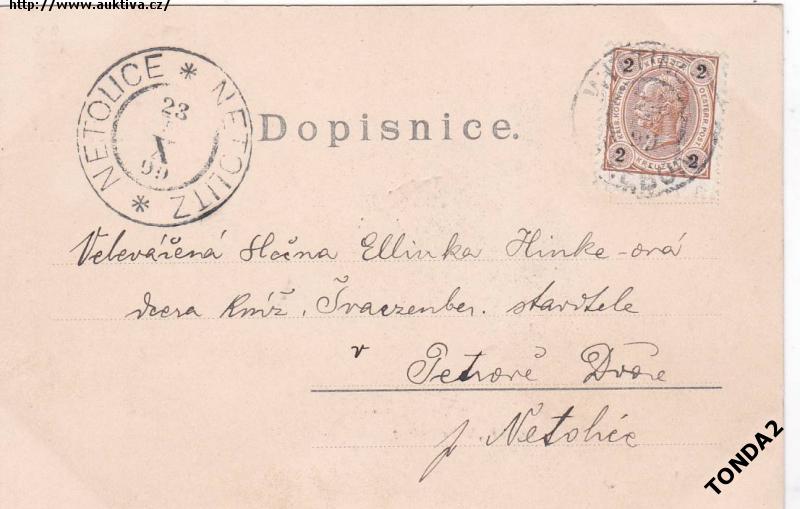 http://www.auktiva.cz/
NETOLICE * NETOLITZ *
23
X
99
Dopisnice.
2 2
2 2
KREUZER
Velevážená Slečna Ellinka Hinke-ová
dcera kníž. Švarzenber. stavitele
v Petrově Dvoře
p. Netolice
TONDA2